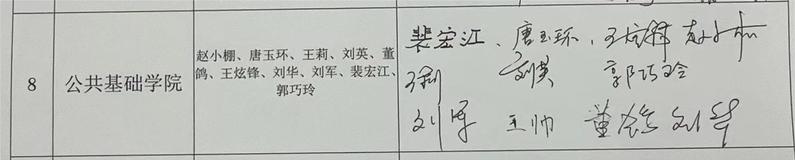 8
公共基础学院
赵小棚、唐玉环、王莉、刘英、董
鸽、王炫锋、刘华、刘军、裴宏江、
郭巧玲
裴宏江、唐玉环、王炫锋 赵小棚
王莉 刘英 郭巧玲
刘军 王帅 董鸽 刘华